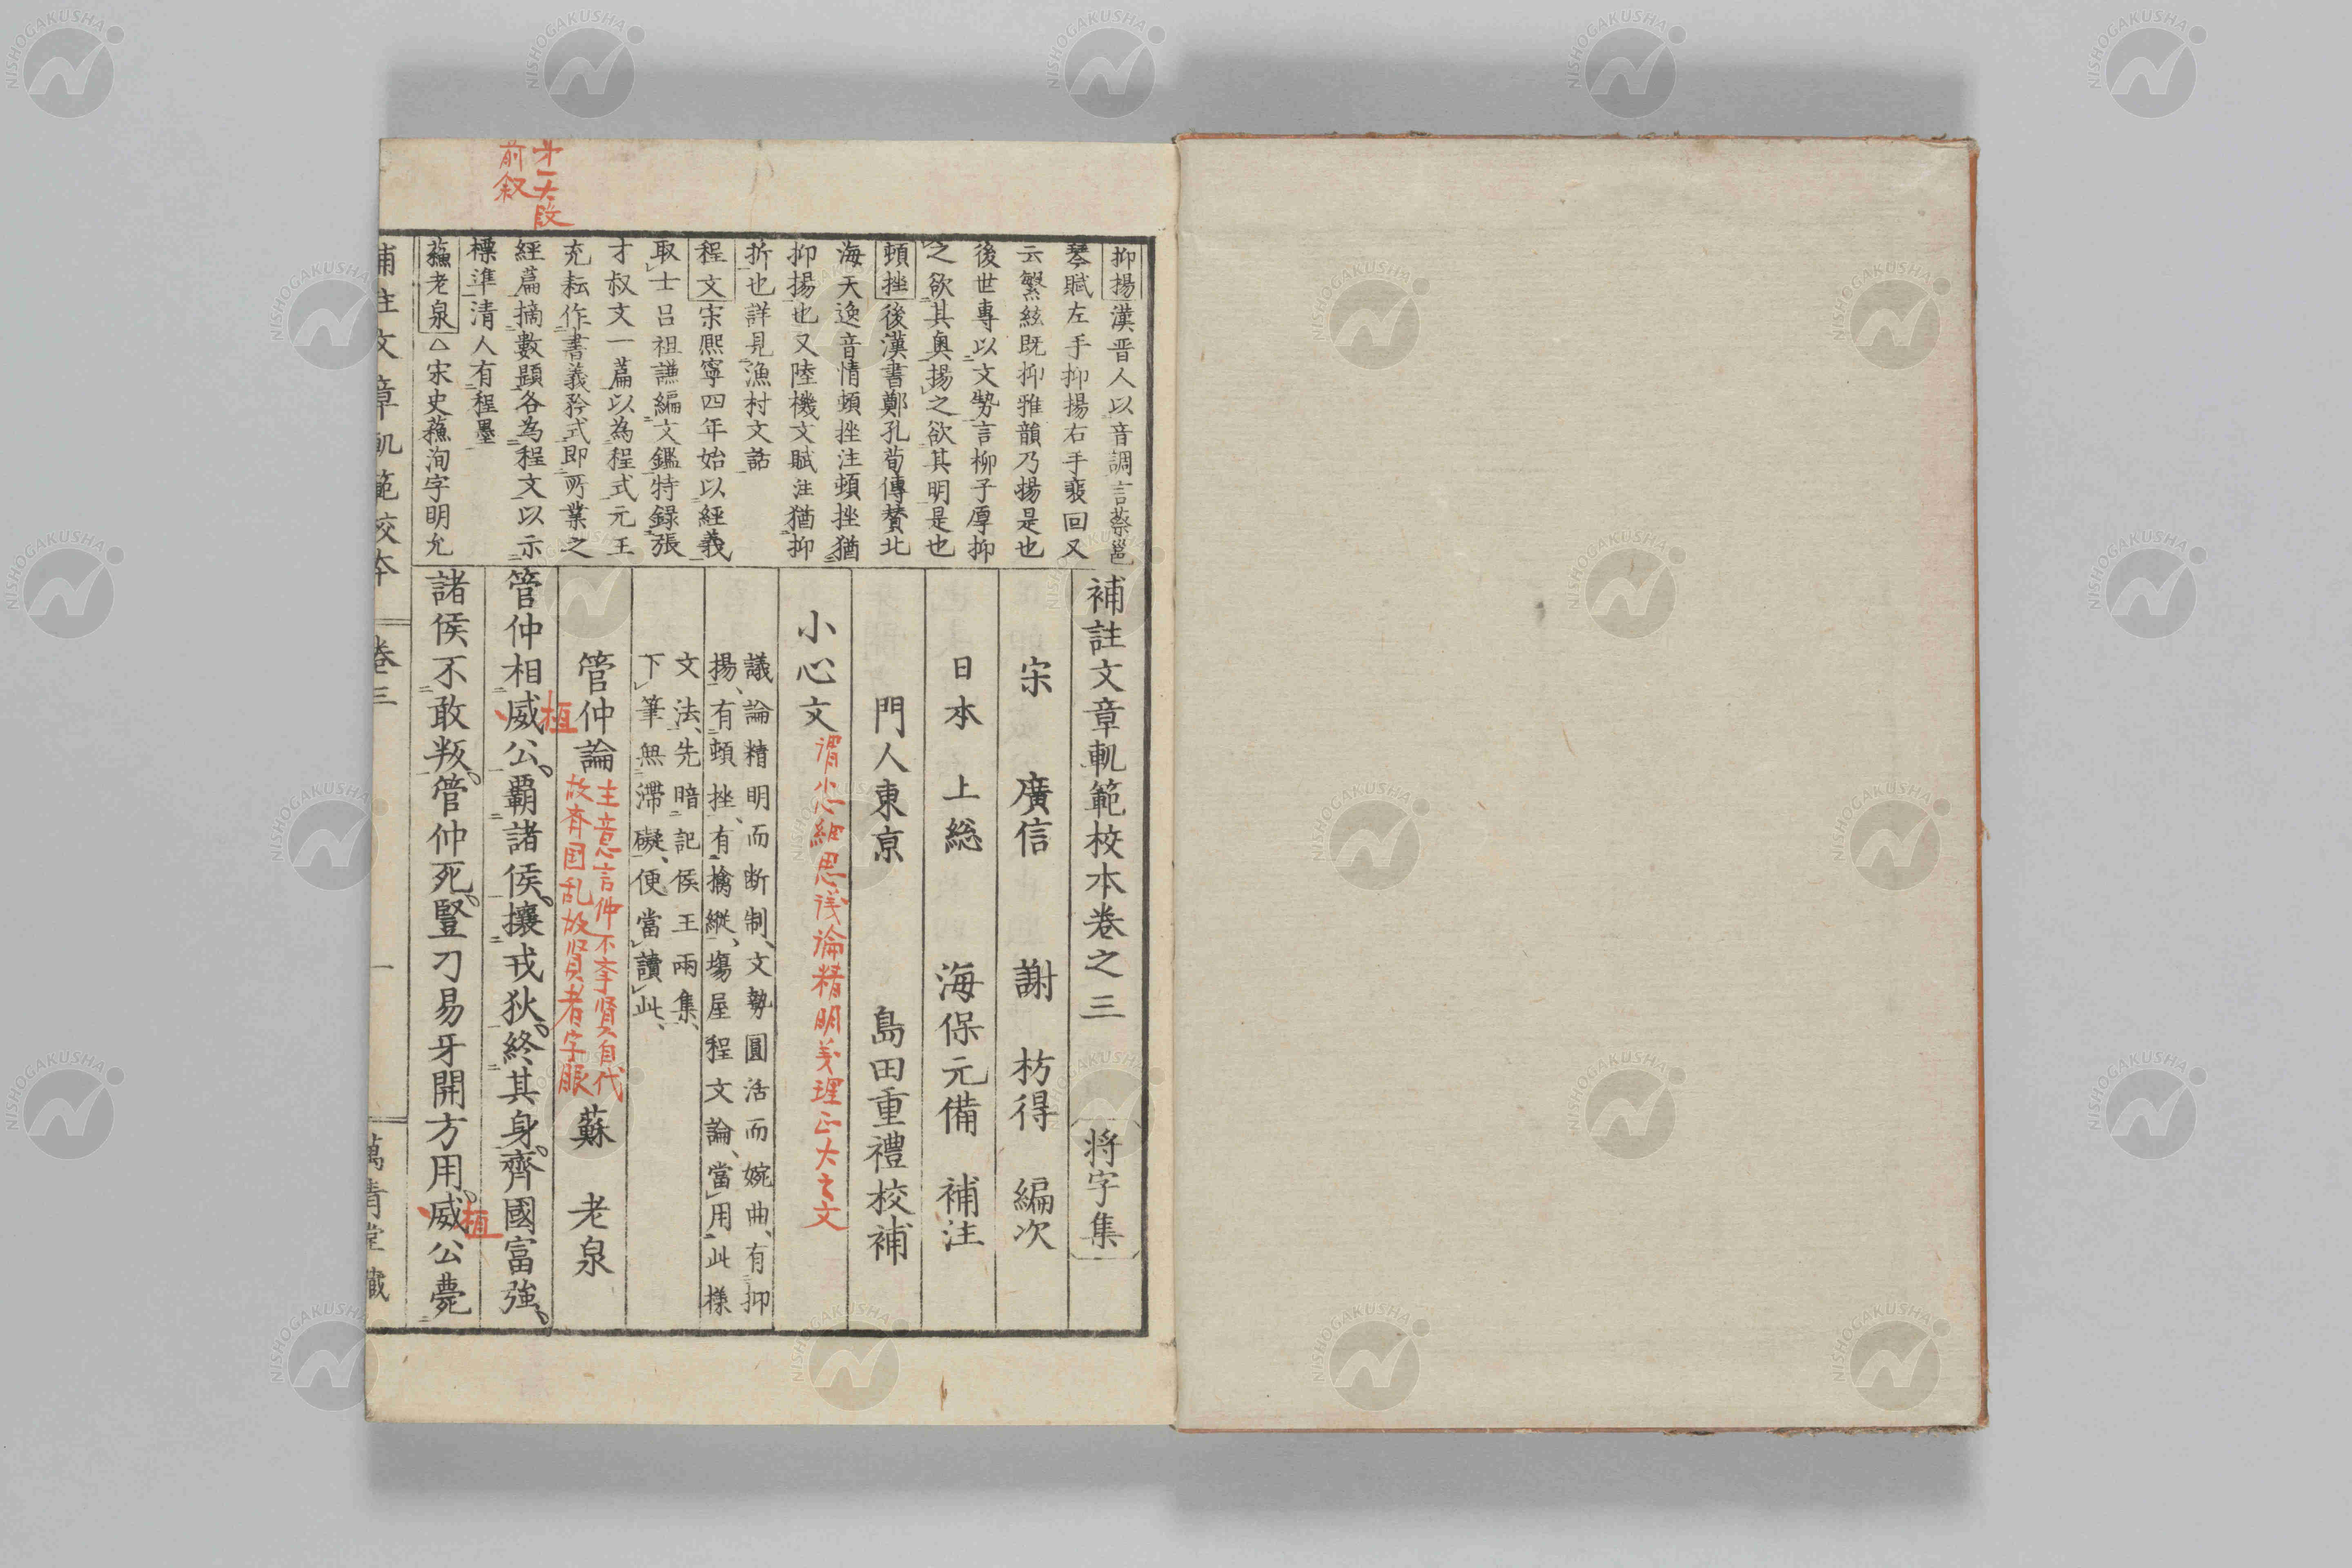 第一大段
前叙
抑揚漢晋人以音調言蔡邕
琴賦左手抑揚右手裴回又
云繁絃既抑雅韻乃揚是也
後世專以文勢言柳子厚抑
之欲其奥揚之欲其明是也
頓挫後漢書鄭孔荀傳賛北
海天逸音情頓挫注頓挫猶
抑揚也又陸機文賦注猶抑
折也詳見漁村文話
程文宋熙寧四年始以經義
取士呂祖謙編文鑑特録張
才叔文一篇以為程式元王
充耘作書義矜式即所業之
經篇摘數題各為程文以示
標準清人有程墨
蘓老泉△宋史蘓洵字明允
補註文章軌範校本卷之三 将字集
宋 廣信 謝 枋得 編次
日本 上総 海保元備 補注
門人東亰 島田重禮校補
小心文
謂小心細思議論精明義理正大之文
議論精明而断制、文勢圓活而婉曲、有抑
揚、有頓挫、有擒縱、塲屋程文論、當用此樣
文法、先暗記侯王兩集、
下筆無滯礙、便當讀此、
管仲論 蘇 老泉
主意言仲不挙賢自代
故斉国乱故賢者字眼
管仲相威公、覇諸侯、攘戎狄、終其身、齊國富強、
桓
諸侯不敢叛、管仲死、豎刁易牙開方用、威公薨
桓
補註文章軌範校本 卷三 一 萬青堂藏
NISHOGAKUSHA